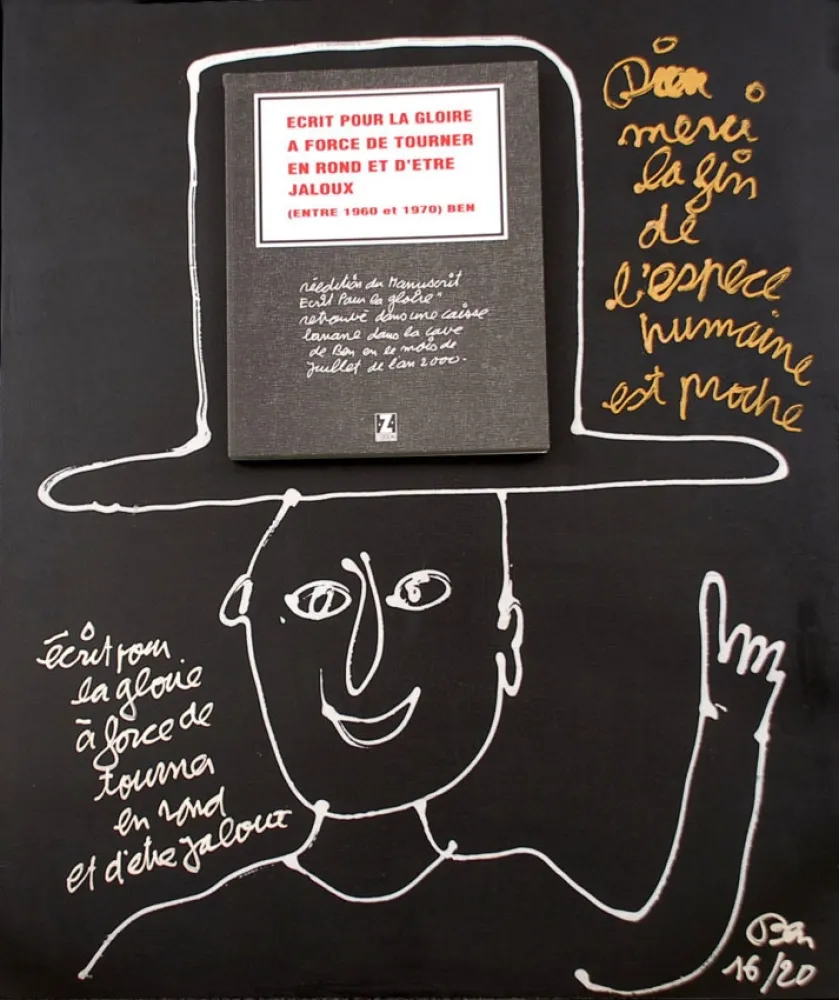 ECRIT POUR LA GLOIRE
A FORCE DE TOURNER
EN ROND ET D'ETRE
JALOUX
(ENTRE 1960 et 1970) BEN
réédition du Manuscrit
Ecrit Pour la gloire"
retrouvé dans une caisse
banane dans la cave
de Ben en le mois de
Juillet de l'an 2000.
Z
Dieu
merci
la fin
de
l'espece
humaine
est proche
écrit pour
la gloire
à force de
tourner
en rond
et d'etre jaloux
Ben
16/20